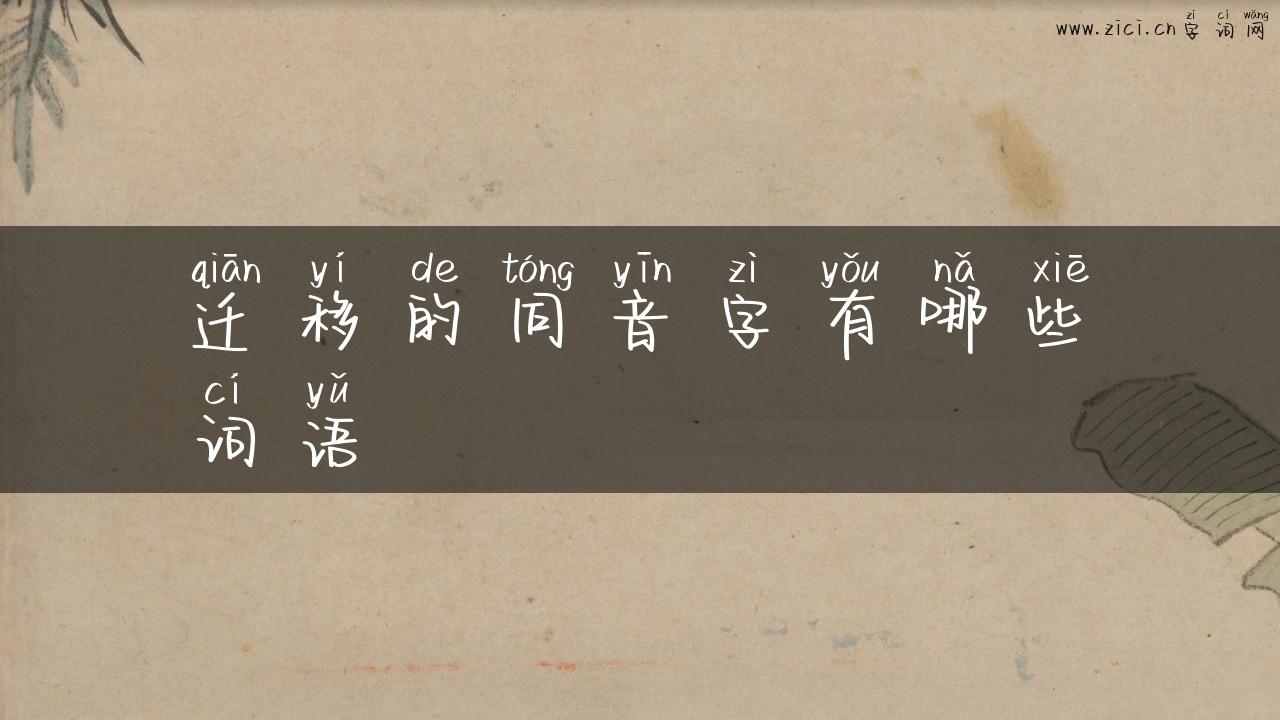 zì cí wǎng
www.zici.cn 字 词 网
qiān yí de tóng yīn zì yǒu nǎ xiē
迁 移 的 同 音 字 有 哪 些
cí yǔ
词 语